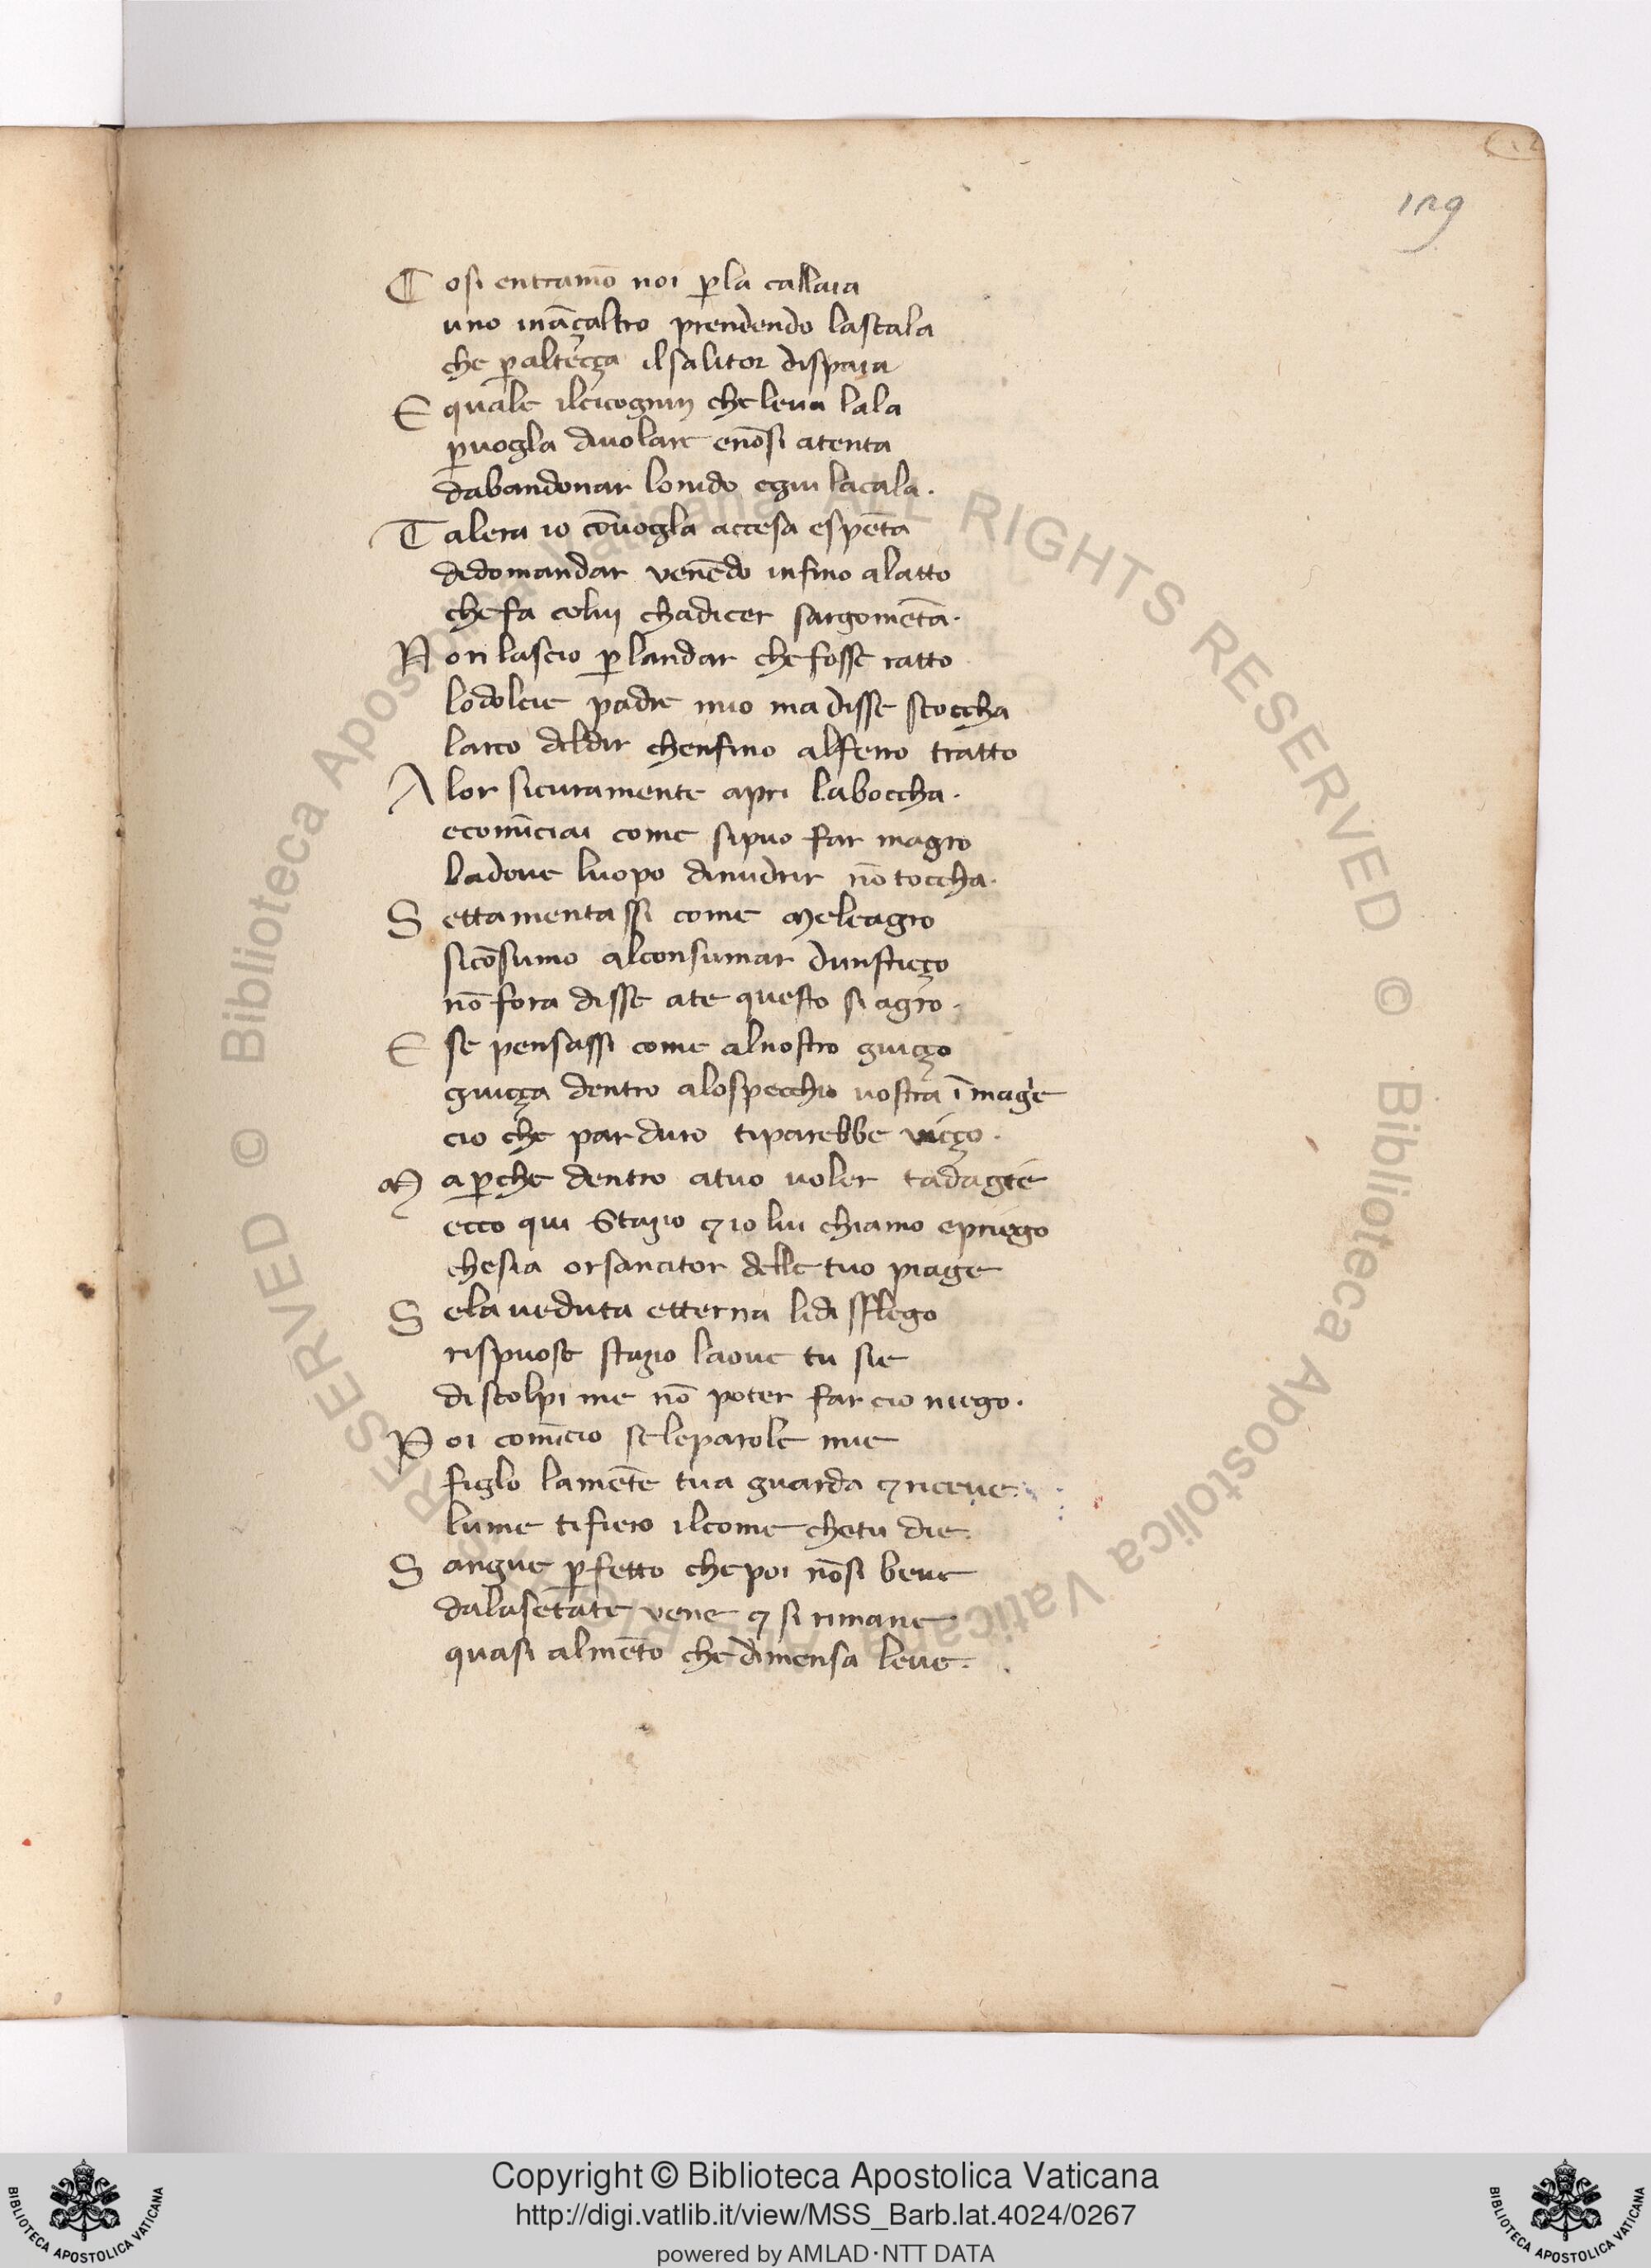 129
C osi entramō noi ꝑla callaia
uno ināçaltro prendendo lascala
che ꝑaltecça ilsalitor dispaia
E quale ilcicognin cheleua lala
ꝑuogla diuolare enōsi atenta
dabandonar lonido egiu lacala.
T alera io cōuogla accesa espēta
dedomandar venēdo infino alatto
chefa colui chadicer sargomēta.
N on lascio ꝑlandar chefosse ratto
lodolcie padre mio ma disse scoccha
larco deldir chenfino alferro tratto
A lor sicuramente apri laboccha.
ecomīciai come sipuo far magro
ladoue luopo dinudrir nō toccha.
S ettamentassi come Meleagro
sicōsumo alconsumar dunsticço
nō fora disse ate questo si agro.
E se pensassi come aluostro guicço
guicça dentro alospecchio uostra īmage
cio che par duro tiparebbe uicço.
M aꝑche dentro atuo uoler tadage
ecco qui Stazio ⁊ io lui chiamo epriego
chesia orsanator delle tuo piage
S ela ueduta etterna lidisslego
rispuose stazio laoue tu sie
discolpi me nō poter far cio niego.
P oi comīcio seleparole mie
figlo lamēte tua guarda ⁊ riceue
lume tifiero ilcome chetu die.
S angue ꝑfetto chepoi nōsi beue
dalasetāte vene ⁊ si rimane
quasi alimēto chedimensa leue.
Copyright © Biblioteca Apostolica Vaticana
http://digi.vatlib.it/view/MSS_Barb.lat.4024/0267
powered by AMLAD·NTT DATA
BIBLIOTECA APOSTOLICA VATICANA
BIBLIOTECA APOSTOLICA VATICANA
© Biblioteca Apostolica Vaticana ALL RIGHTS RESERVED
© Biblioteca Apostolica Vaticana ALL RIGHTS RESERVED